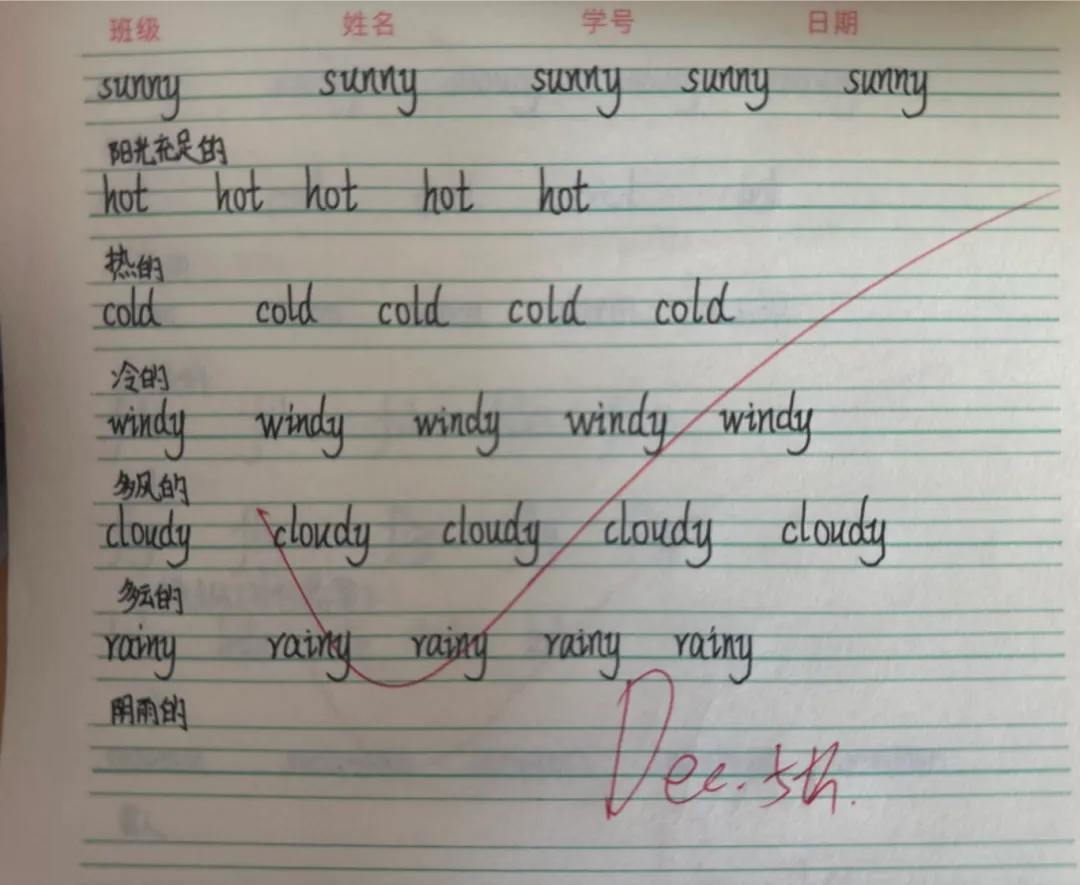 班级 姓名 学号 日期
sunny sunny sunny sunny sunny
阳光充足的
hot hot hot hot hot
热的
cold cold cold cold cold
冷的
windy windy windy windy windy
多风的
cloudy cloudy cloudy cloudy cloudy
多云的
rainy rainy rainy rainy rainy
阴雨的
Dec. 5th.